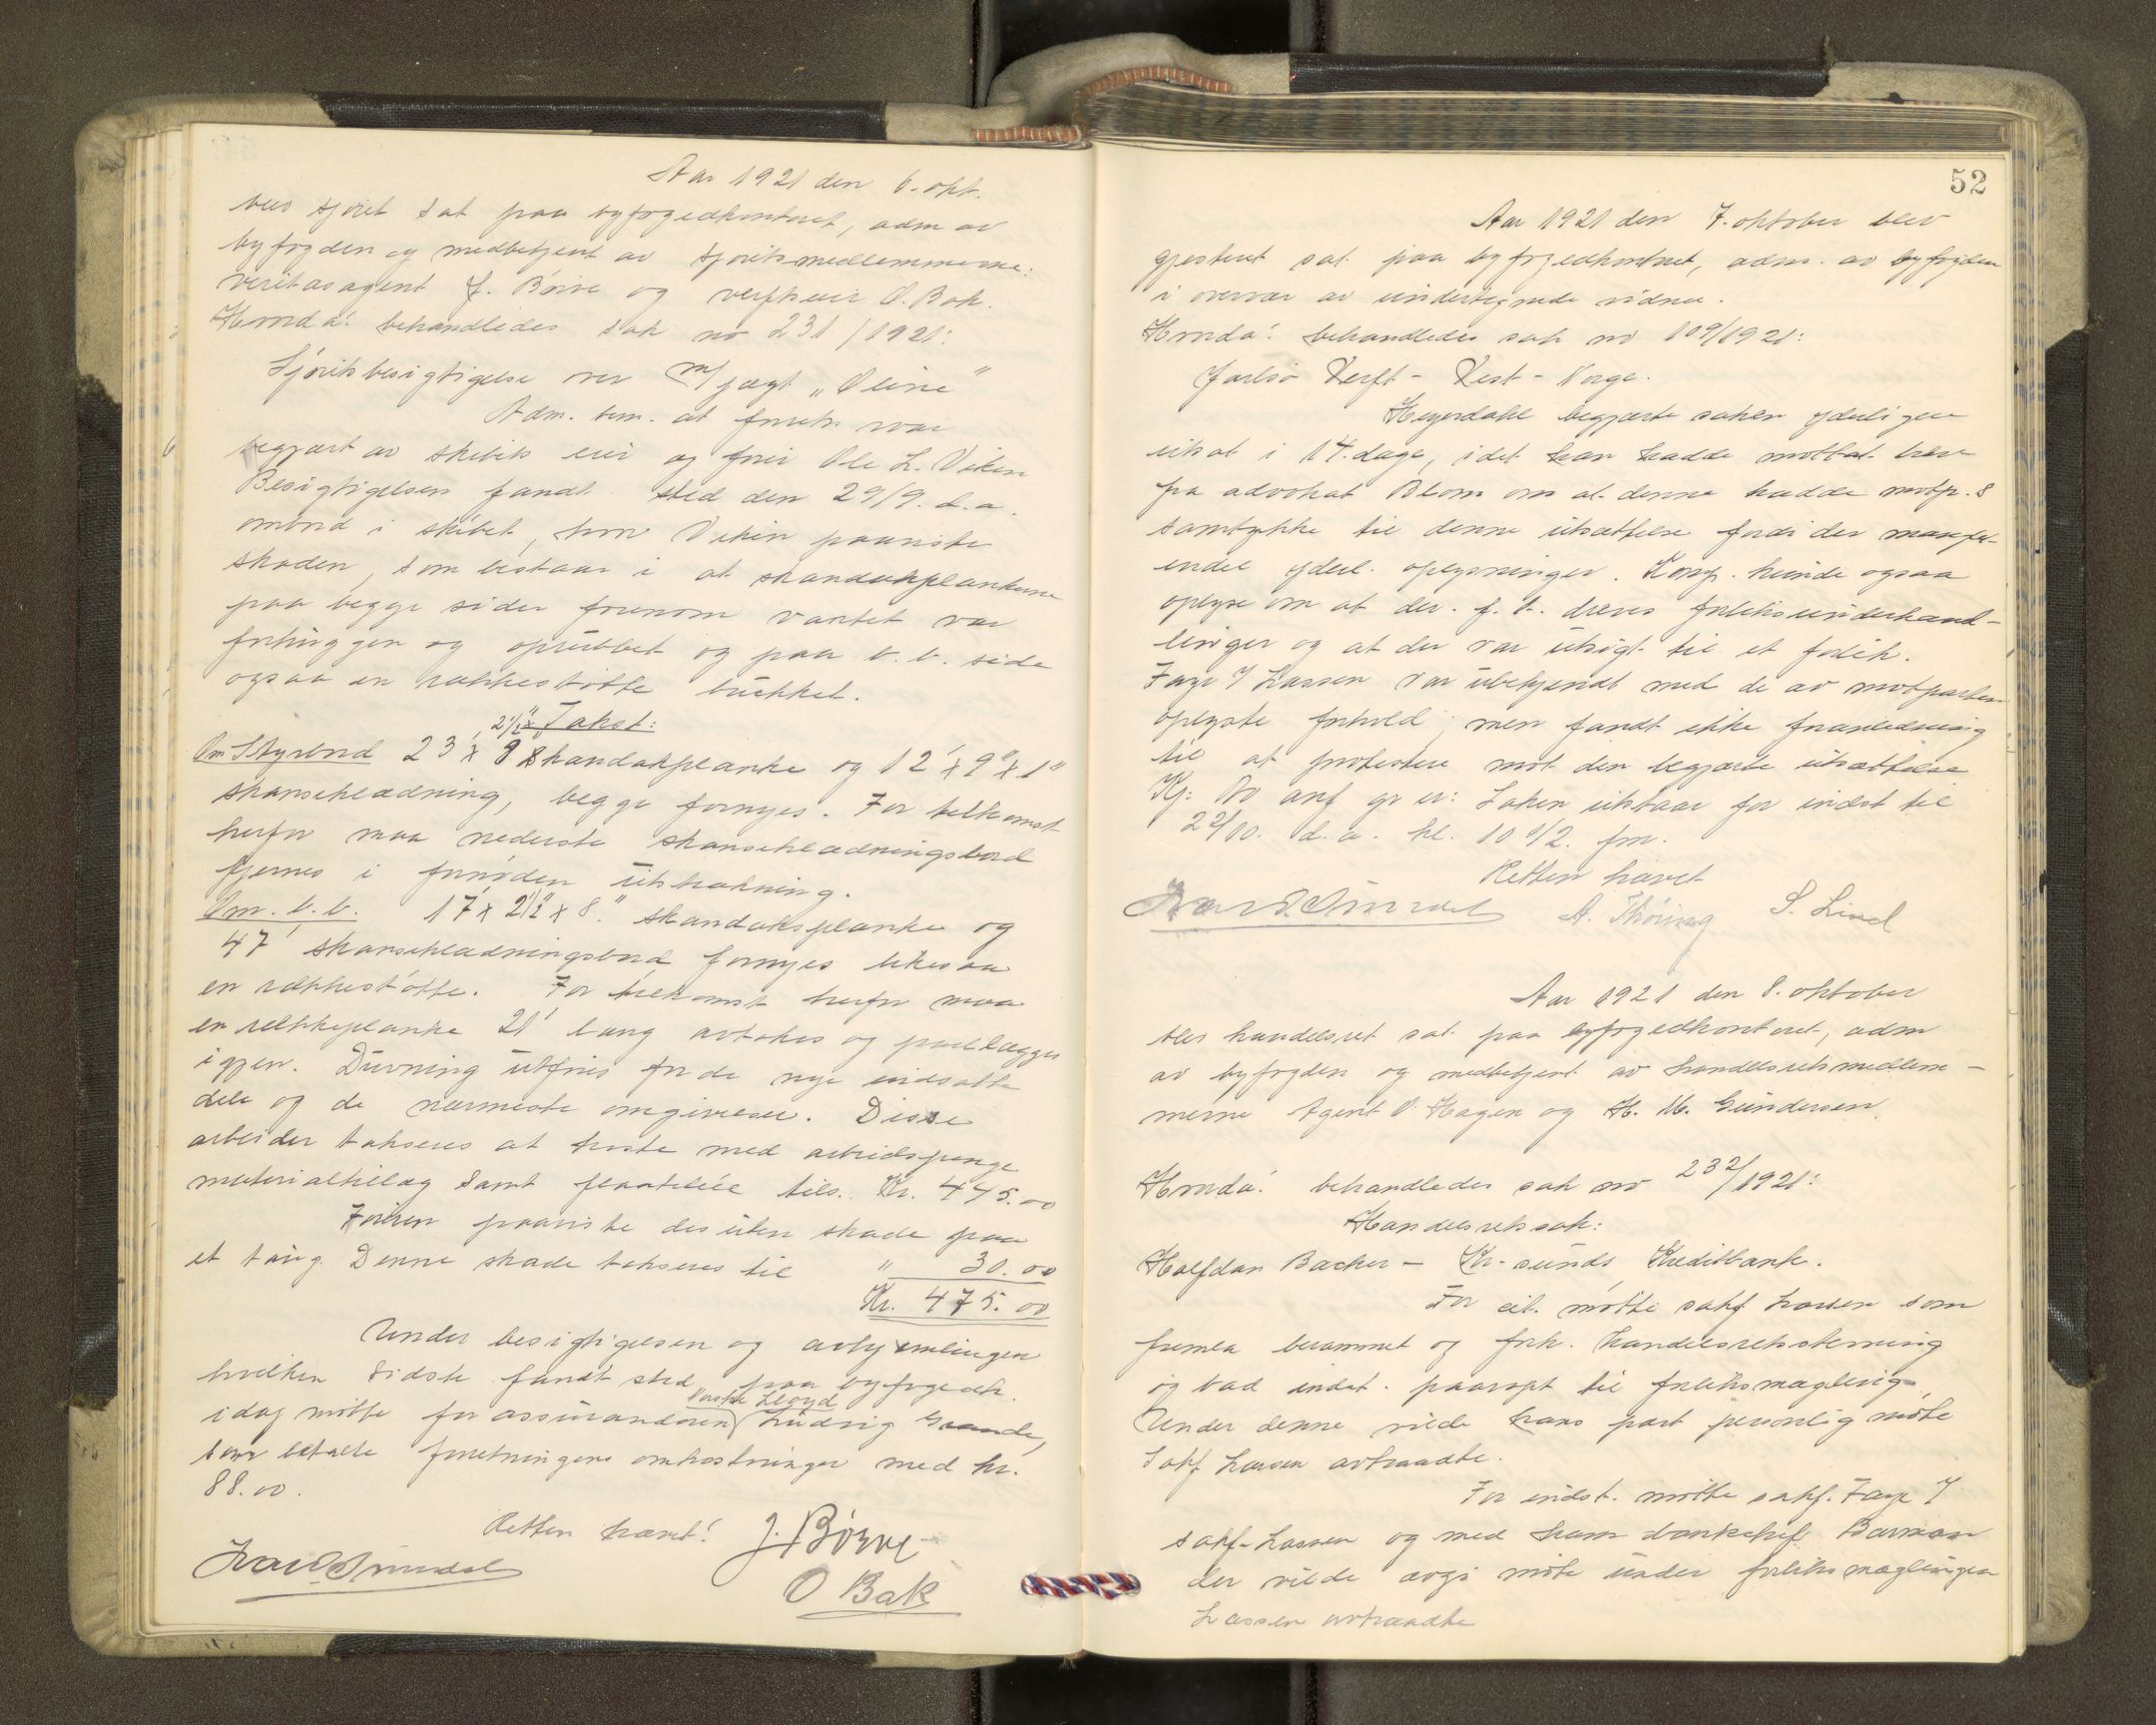 Aar 1921 den 6. okt.
blev sjøret sat paa byfogedkontoret, adm av
byfogden og medbetjent av sjøretsmedlemmerne:
veritasagent J. Börve og verftseier O. Bak.
Hvorda! behandledes sak no 231/1921:
Sjøretsbesigtigelse over M/jagt „Oline"
Adm. bem. at forretn. var
begjært av skibets eier og fører Ole L. Viken
Besigtigelsen fandt sted den 29/9. d.a.
ombord i skibet, hvor Viken paaviste
skaden, som bestaar i at skandækplankerne
paa begge sider forenom vantet var
forhuggen og oprubbet og paa b.b. side
ogsaa en rækkestötte brukket.
Takst:
Om Styrbord 23' x 2½" x 8 Skandækplanke og 12' x 9" x 1"
skanseklædning, begge fornyes. For tilkomst
herfor maa nederste skanseklædningsbord
fjernes i fornöden utstrækning.
Om. b.b. 17' x 2½" x 8." skandæksplanke og
47' skanseklædningsbord fornyes likesaa
en rækkestötte. For tilkomst herfor maa
en rekkeplanke 21' lang avtakes og paalægges
igjen. Drivning utføres for de nye indsatte
dele og de nærmeste omgivelser. Disse
arbeider takseres at koste med arbeidspenge
materialtillæg samt flaateleie tils. Kr. 445.00
Føreren paaviste desuten skade paa
et taug. Denne skade takseres til " 30.00
Kr. 475.00
Under besigtigelsen og avhjemlingen
hvilken sidste fandt sted paa byfogedk.
i dag mötte for assurandøren Norske Lloyd Ludvig
som betalte forretningens omkostninger med kr.
88.00.
Retten hævet!
J. Börve
O Bak
52
Aar 1921 den 7. oktober blev
gjesteret sat paa byfogedkontoret, adm. av byfogden
i overvær av undertegnede vidner.
Hvorda! behandledes sak no 109/1921:
Jarlsö Verft - Vest-Norge.
Heyerdahl begjærte saken yderligere
utsat i 14 dage, idet han hadde mottat brev
fra advokat Blom om at denne hadde motp.s
samtykke til denne utsættelse fordi der mangler
endel yderl. oplysninger. Komp. kunde ogsaa
oplyse om at der f.t. dreves forliksunderhand-
linger og at der var utsigt til et forlik.
Faye / Lassen var ubekjendt med de av motparten
oplyste forhold, men fandt ikke foranledning
til at protestere mot den begjærte utsættelse
Kj: Av anf. gr. er: Saken utstaar for indst til
22/10. d.a. kl. 10 1/2. fm.
Retten hævet
A. Thöring S. Lind
Aar 1921 den 8. oktober
blev handelsret sat paa byfogedkontoret, adm
av byfogden og medbetjent av handelsretsmedlem-
merne Agent O. Hagen og H. M. Gundersen.
Hvorda! behandledes sak no 232/1921:
Handelsretssak:
Halfdan Backer - Kr-sunds Kreditbank.
For cit. mötte sakf Larsen som
fremla berammet og fork. handelsretsstevning
og bad indst. paaropt til forliksmægling.
Under denne vilde hans part personlig møte
Sakf. Larsen avtraadte.
For indst. mötte sakf. Faye /
sakf. Lassen og med ham bankchef Barman
der vilde avgi möte under forliksmæglingen
Lassen avtraadte